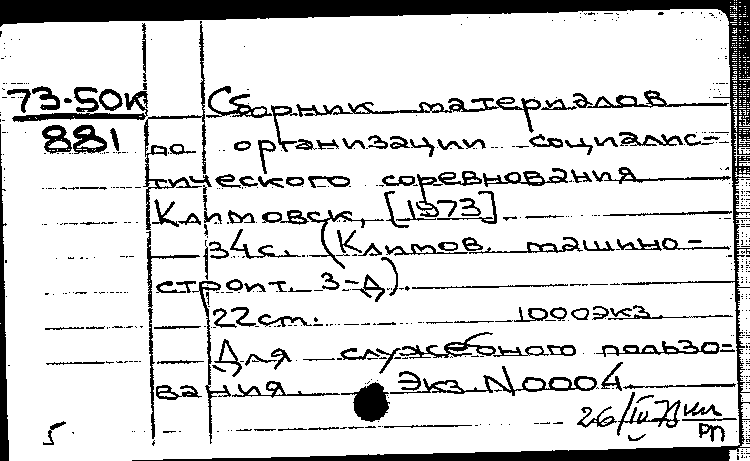 73-50к
881
Сборник материалов
по организации социалис-
тического соревнования
Климовск, [1973].
34с. (Климов. машино-
строит. з-д).
22см. 1000экз.
Для служебного пользо-
вания. Экз. N 0004.
26/IV-73
РП
5